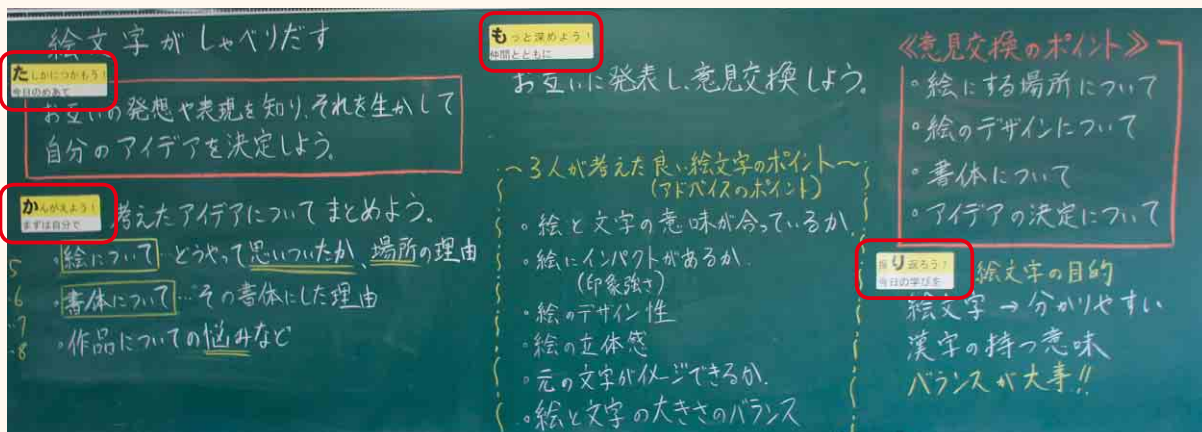 絵文字がしゃべりだす
たしかにつかもう!
今日のめあて
お互いの発想や表現を知り、それを生かして
自分のアイデアを決定しよう。
かんがえよう!
まずは自分で
考えたアイデアについてまとめよう。
5
・絵について どうやって思いついたか、場所の理由
6
・書体について…その書体にした理由
7
8
・作品についての悩みなど
もっと深めよう!
仲間とともに
お互いに発表し、意見交換しよう。
~3人が考えた良い絵文字のポイント~
(アドバイスのポイント)
・絵と文字の意味が合っているか。
・絵にインパクトがあるか.
(印象強さ)
・絵のデザイン性
・絵の立体感
・元の文字がイメージできるか.
・絵と文字の大きさのバランス
《意見交換のポイント》
・絵にする場所について
・絵のデザインについて
・書体について
・アイデアの決定について
振り返ろう!
今日の学びを
絵文字の目的
絵文字→分かりやすい
漢字の持つ意味
バランスが大事!!